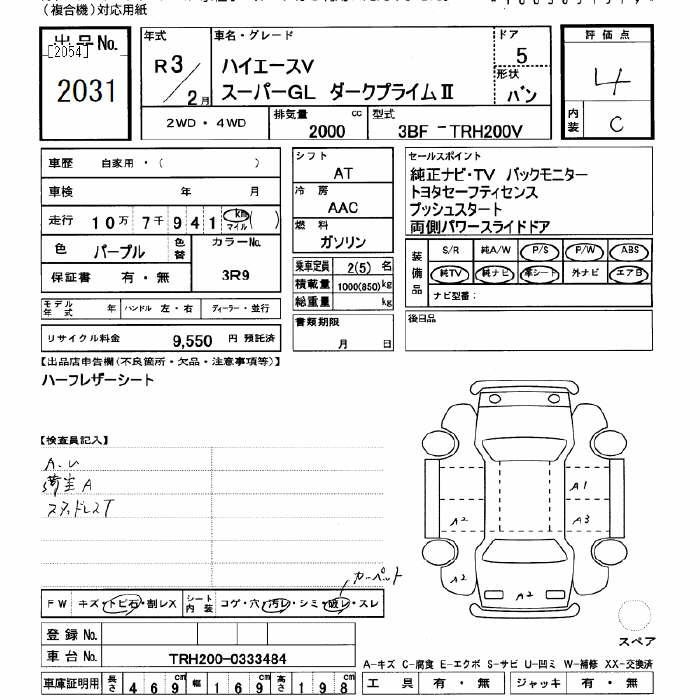 (複合機)対応用紙
出品No.
[2054]
2031
年式
R3/2月
車名・グレード
ハイエースV
スーパーGL ダークプライムⅡ
ドア
5
形状
バン
評価点
4
内装
C
2WD・4WD
排気量
2000
cc
型式
3BF-TRH200V
車歴 自家用・( )
車検 年 月
走行 10万 7千 9 4 1 km マイル ( )
色 パープル 色替
カラーNo.
3R9
保証書 有・無
モデル年式 年 ハンドル 左・右 ディーラー・並行
リサイクル料金 9,550 円 預託済
シフト
AT
冷房
AAC
燃料
ガソリン
乗車定員 2(5) 名
積載量 1000(850) kg
総重量 kg
書類期限
月 日
セールスポイント
純正ナビ・TV バックモニター
トヨタセーフティセンス
プッシュスタート
両側パワースライドドア
装備品
S/R 純A/W P/S P/W ABS
純TV 純ナビ 革シート 外ナビ エアB
ナビ型番:
後日品
【出品店申告欄(不良箇所・欠品・注意事項等)】
ハーフレザーシート
【検査員記入】
A.U
荷室A
スタッドレスT
カーペット
FW キズ・トビ石・割レX シート内装 コゲ・穴・汚レ・シミ・破レ・スレ
登録No.
車台No. TRH200-0333484
車庫証明用 長さ 469cm 幅 169cm 高さ 198cm
A1
A2 A3
A2
A2
スペア
A-キズ C-腐食 E-エクボ S-サビ U-凹ミ W-補修 XX-交換済
工具 有・無 ジャッキ 有・無